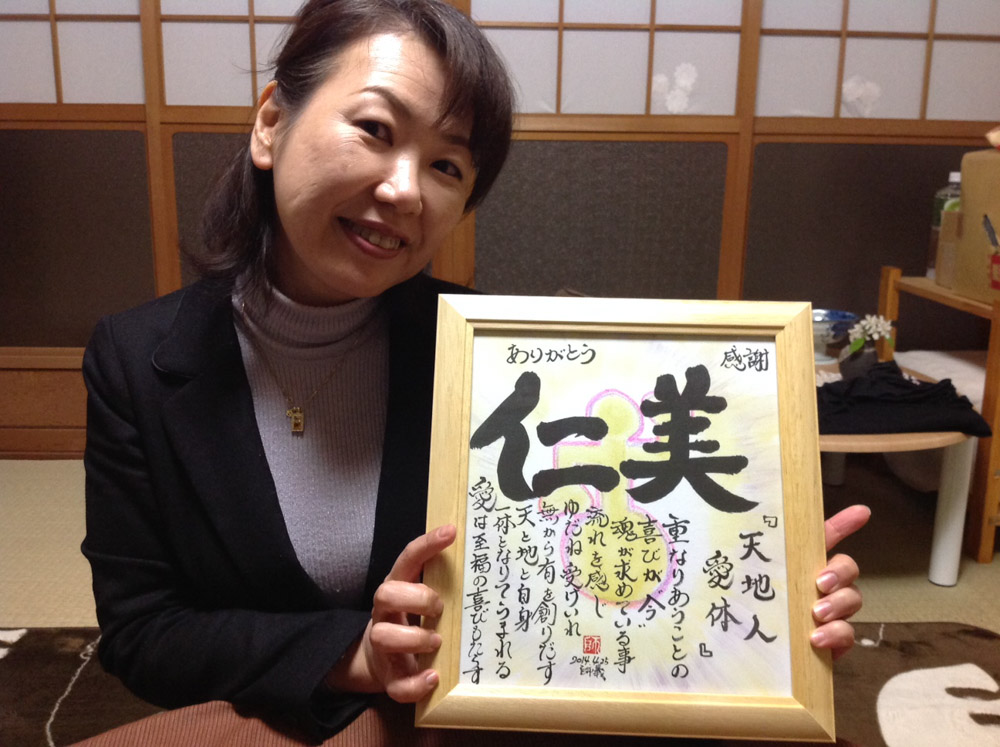 ありがとう
感謝
仁美
『天地人
愛体』
重なりあうことの
喜びが〝今〟
魂が求めている事
流れを感じ
ゆだね受けいれ
無から有を創りだす
天と地と自身
一体となりてうまれる
愛は至福の喜びもたらす
2014.4.25